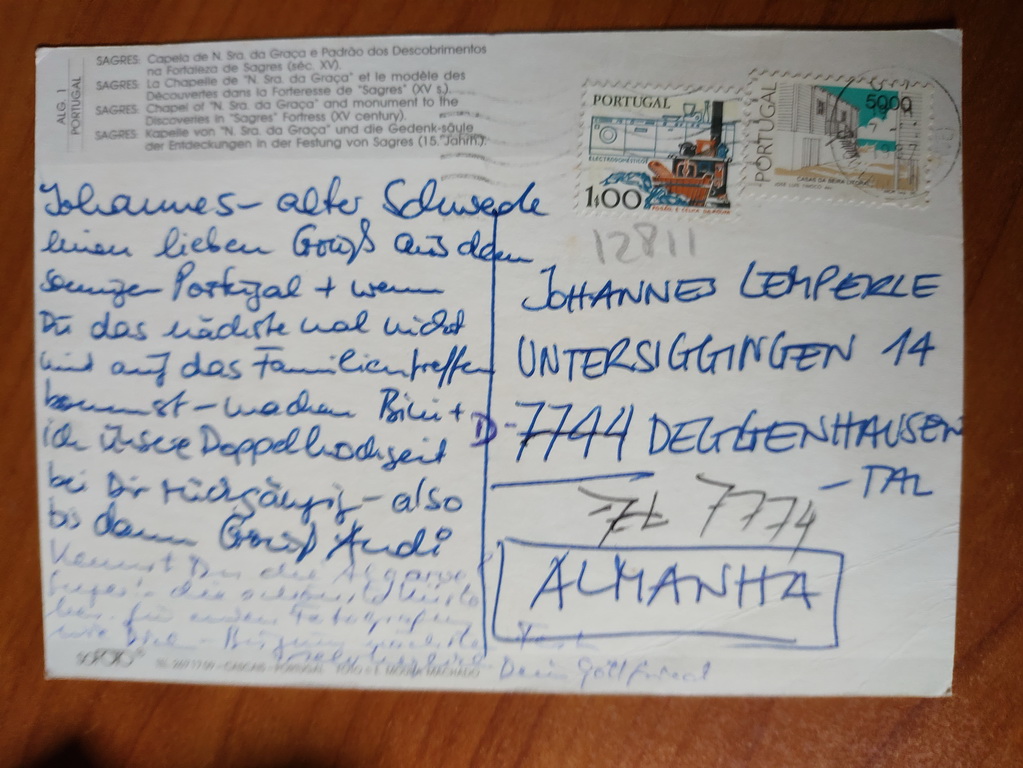 ALG. 1
PORTUGAL
SAGRES: Capela de N. Sra. da Graça e Padrão dos Descobrimentos
na Fortaleza de Sagres (séc. XV).
SAGRES: La Chapelle de "N. Sra. da Graça" et le modèle des
Découvertes dans la Forteresse de "Sagres" (XV s.).
SAGRES: Chapel of "N. Sra. da Graça" and monument to the
Discoveries in "Sagres" Fortress (XV century).
SAGRES: Kapelle von "N. Sra. da Graça" und die Gedenk-säule
der Entdeckungen in der Festung von Sagres (15. Jahrh.).
PORTUGAL
1$00
PORTUGAL
50$00
12811
Johannes - alter Schwede
einen lieben Gruß aus dem
sonnigen Portugal + wenn
Du das nächste mal nicht
mit auf das Familientreffen
kommst - machen Bini +
ich unsere Doppelhochzeit
bei Dir rückgängig - also
bis dann Gruß Andi
Kennst Du die Algarve
die
für
wie Dich -
Dein Gottfried
JOHANNES LEMPERLE
UNTERSIGGINGEN 14
D-7744 DEGGENHAUSEN
-TAL
7774
ALMANHA